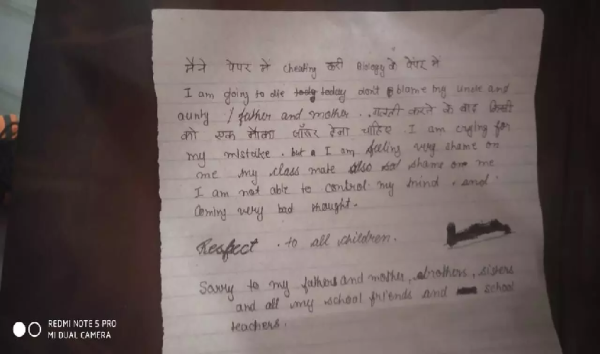 मैने पेपर मे cheating करी Biology के पेपर मे
I am going to die today don't blame my uncle and
aunty / father and mother .. गलती करने के बाद किसी
को एक मौका जरूर देना चाहिए I am crying for
my mistake . but I am feeling very shame on
me my class mate also shame on me
I am not able to control my mind . and
coming very bad thought .
Respect . to all children .
Sorry to my fathers and mother, brothers, sisters
and all my school friends and school
teachers .
REDMI NOTE 5 PRO
MI DUAL CAMERA